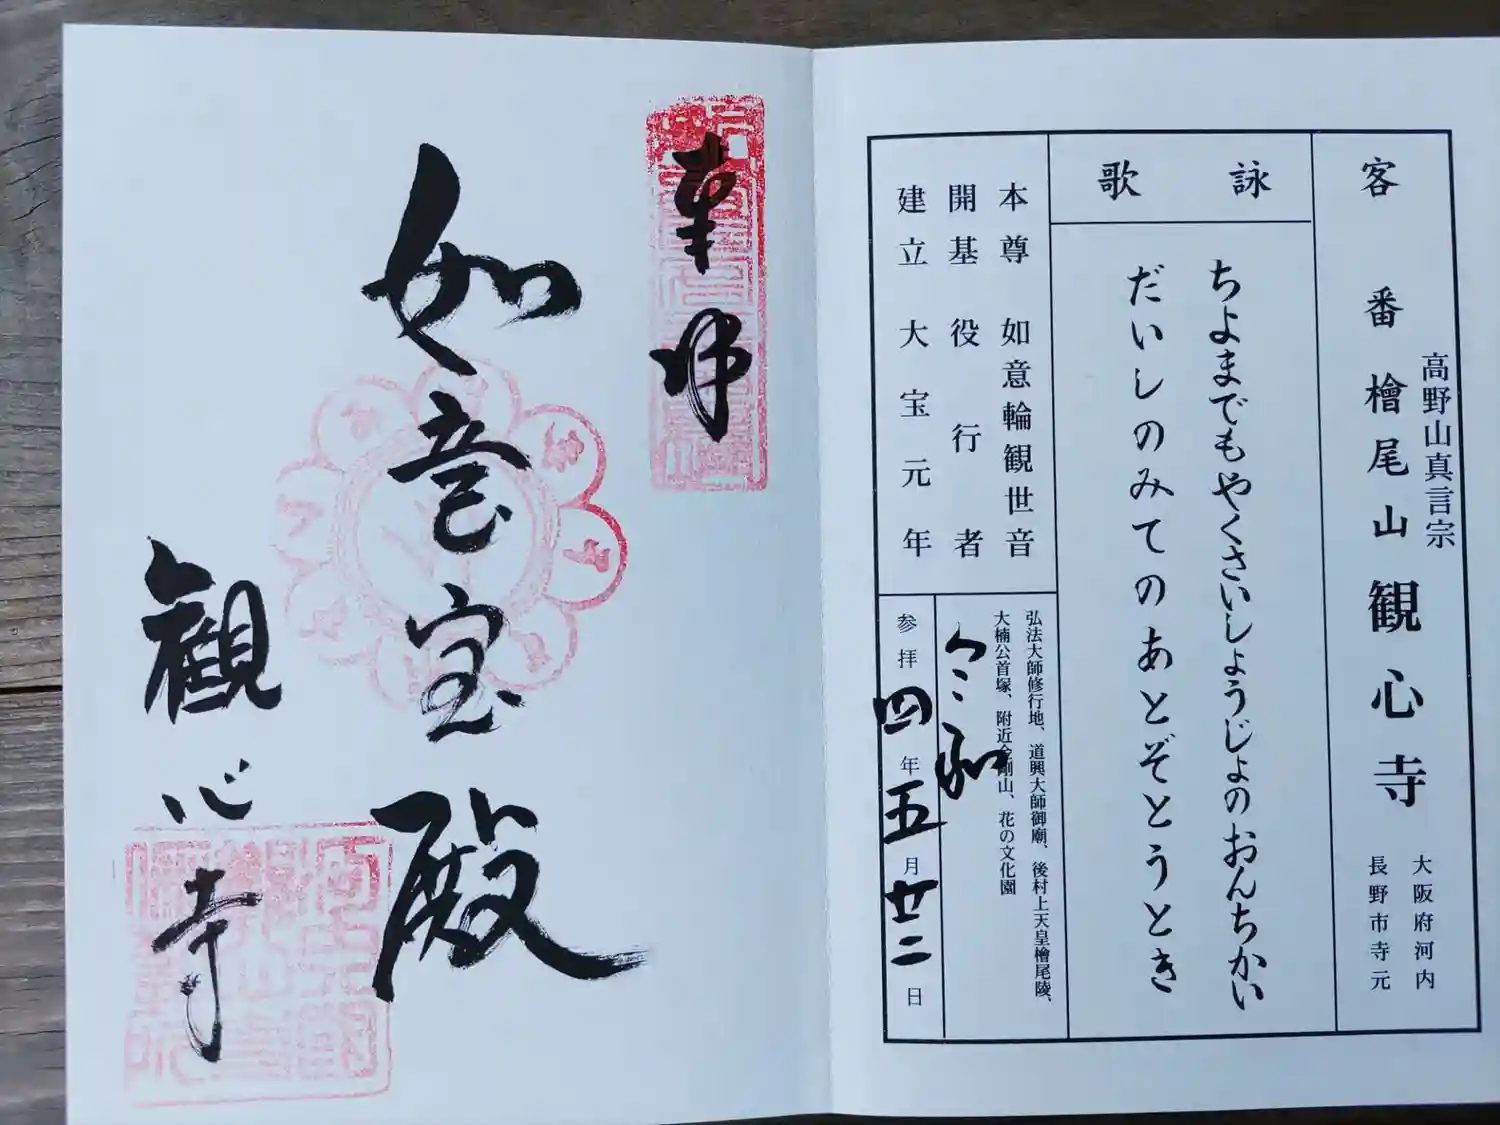 客番
高野山真言宗
檜尾山観心寺
大阪府河内
長野市寺元
詠歌
ちよまでもやくさいしょうじょのおんちかい
だいしのみてのあとぞとうとき
本尊 如意輪観世音
開基 役行者
建立 大宝元年
弘法大師修行地、道興大師御廟、後村上天皇檜尾陵、
大楠公首塚、附近金剛山、花の文化園
令和
参拝四年五月廿二日
奉拝
如意宝殿
観心寺